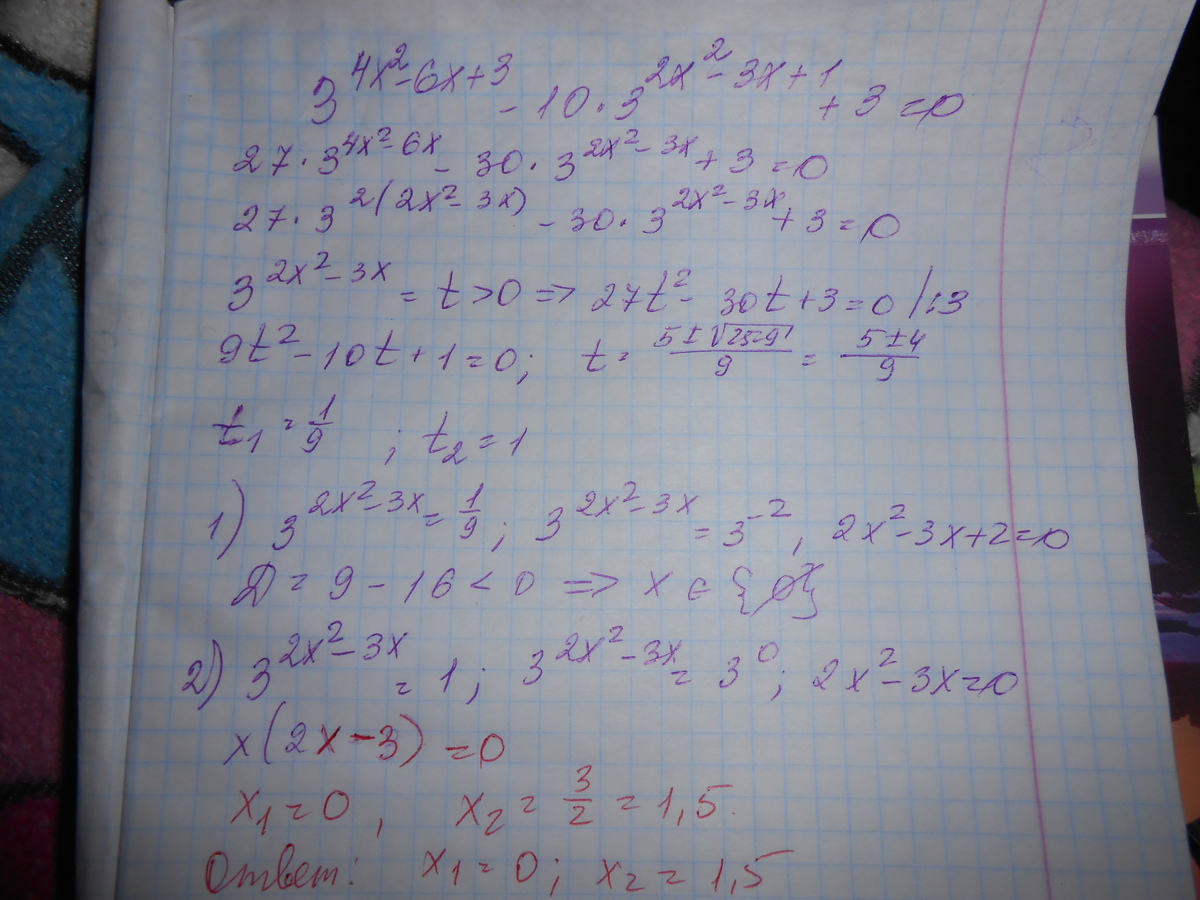 3^(4x²-6x+3) - 10·3^(2x²-3x+1) + 3 = 0
27·3^(4x²-6x) - 30·3^(2x²-3x) + 3 = 0
27·3^(2(2x²-3x)) - 30·3^(2x²-3x) + 3 = 0
3^(2x²-3x) = t > 0 => 27t² - 30t + 3 = 0 /:3
9t² - 10t + 1 = 0; t = (5±√(25-9))/9 = (5±4)/9
t₁ = 1/9 ; t₂ = 1
1) 3^(2x²-3x) = 1/9 ; 3^(2x²-3x) = 3^(-2), 2x²-3x+2=0
D = 9 - 16 < 0 => x ∈ {∅}
2) 3^(2x²-3x) = 1; 3^(2x²-3x) = 3^0; 2x²-3x=0
x(2x-3) = 0
x₁ = 0, x₂ = 3/2 = 1,5.
Ответ: x₁ = 0; x₂ = 1,5